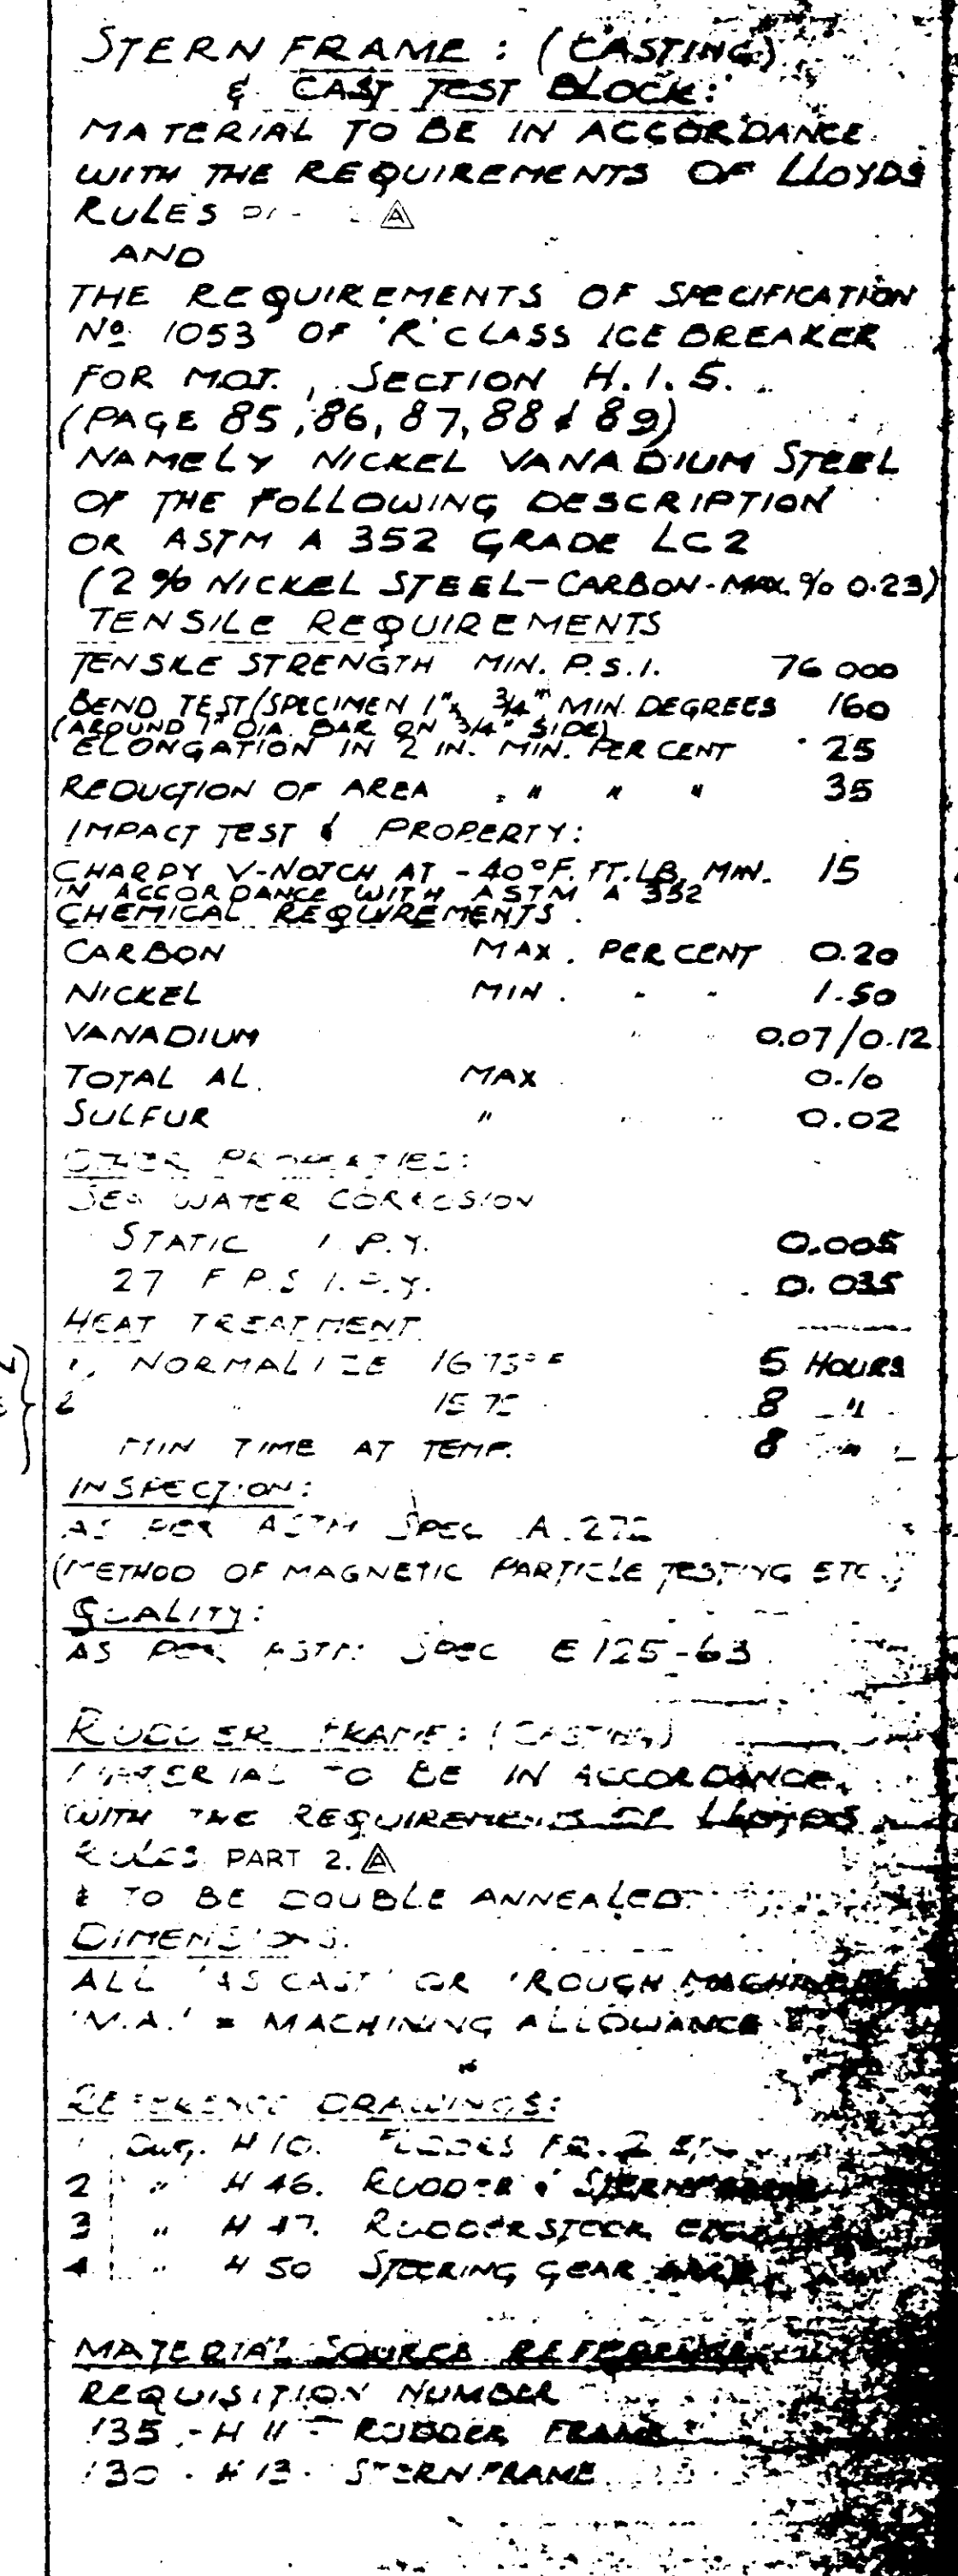 STERN FRAME : (CASTING)
& CAST TEST BLOCK:
MATERIAL TO BE IN ACCORDANCE
WITH THE REQUIREMENTS OF LLOYDS
RULES A
AND
THE REQUIREMENTS OF SPECIFICATION
Nº 1053 OF 'R' CLASS ICE BREAKER
FOR M.O.T. , SECTION H.I.5.
(PAGE 85, 86, 87, 88 & 89)
NAMELY NICKEL VANADIUM STEEL
OF THE FOLLOWING DESCRIPTION
OR ASTM A 352 GRADE LC2
(2 % NICKEL STEEL - CARBON - MAX. % 0.23)
TENSILE REQUIREMENTS
TENSILE STRENGTH MIN. P.S.I. 76 000
BEND TEST/SPECIMEN 1" x 3/4" MIN. DEGREES 160
(AROUND 1" DIA. BAR ON 3/4" SIDE)
ELONGATION IN 2 IN. MIN. PER CENT 25
REDUCTION OF AREA " " " 35
IMPACT TEST & PROPERTY:
CHARPY V-NOTCH AT -40°F. FT.LB. MIN. 15
IN ACCORDANCE WITH ASTM A 352
CHEMICAL REQUIREMENTS.
CARBON MAX. PER CENT 0.20
NICKEL MIN. " " 1.50
VANADIUM " " 0.07/0.12
TOTAL AL. MAX 0.10
SULFUR " " " 0.02
OTHER PROPERTIES:
SEA WATER CORROSION
STATIC I.P.Y. 0.005
27 F.P.S. I.P.Y. 0.035
HEAT TREATMENT
1, NORMALIZE 1675°F 5 HOURS
2 " 157 8 "
MIN TIME AT TEMP. 8 "
INSPECTION:
AS PER ASTM SPEC A.27
(METHOD OF MAGNETIC PARTICLE TESTING ETC.)
QUALITY:
AS PER ASTM SPEC E 125-63
RUDDER FRAME: (CASTING)
MATERIAL TO BE IN ACCORDANCE
WITH THE REQUIREMENTS OF LLOYDS
RULES PART 2. A
& TO BE DOUBLE ANNEALED
DIMENSIONS.
ALL 'AS CAST' OR 'ROUGH MACHINED
'M.A.' = MACHINING ALLOWANCE
REFERENCE DRAWINGS:
1 Dwg. H 10. FLOORS FR. 2
2 " H 46. RUDDER & STERNFRAME
3 " H 47. RUDDERSTOCK ETC.
4 " H 50 STEERING GEAR
MATERIAL SOURCE REFERENCE
REQUISITION NUMBER
135 - H 11 - RUDDER FRAME
130 - H 13 - STERNFRAME